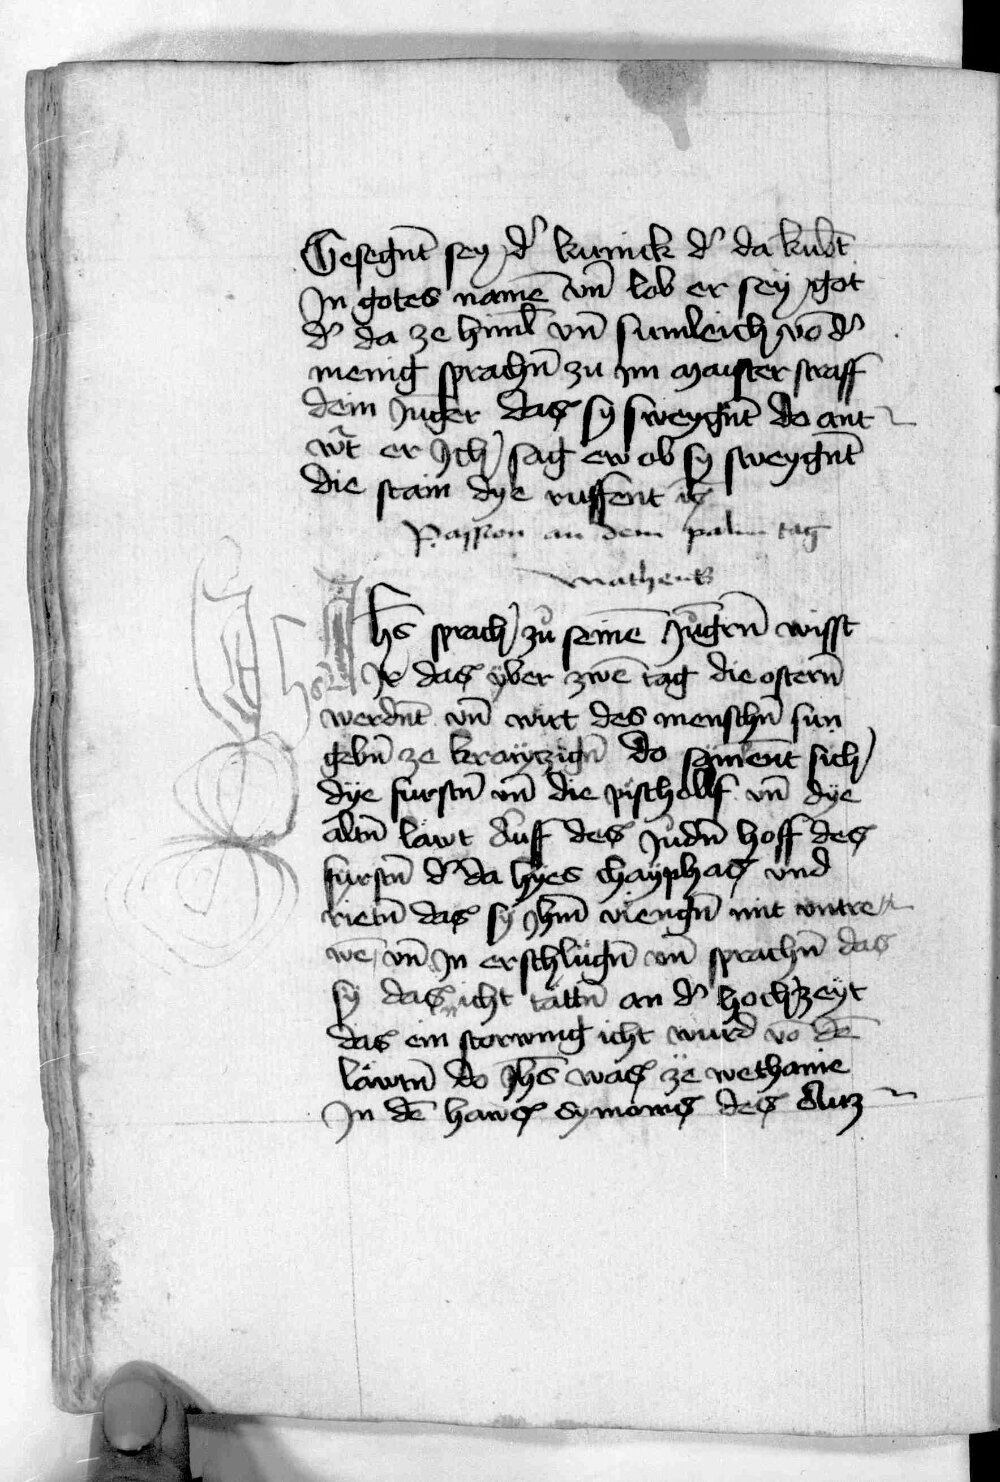 Gesegnt sey d' kunick d' da kubt
In gotes namē vn̄ lob er sey got
d' da ze himl vn̄ sumleich vō d'
menig sprachn̄ zu im maister straff
dein Junger das sy sweygnt do ant
wt er Ich sag ew ob sy sweygnt
die stain dye ruffent
Passion an dem palm tag
Matheus
Jhs sprach zu seinē Jungrn̄ wisst
Ir das yber zwē tag die ostern̄
werdnt vn̄ wirt des menschn̄ sun
gebn̄ ze kraytzign̄ do samēnt sich
dye furstn̄ vn̄ die pischolf vn̄ dye
altn̄ läwt Auff des Judn̄ hoff des
furstn̄ d' da hyes chayphas vnd
rietn̄ das sy Jhm̄ viengn̄ mit vntre
wē vn̄ In erschlügn̄ vn̄ sprachn̄ das
sy das nicht tättn̄ an d' hochzeyt
das ein storwng icht wurd vo dē
läwtn̄ do Jhs was ze wethanie
In dē haws Symonis des Auz